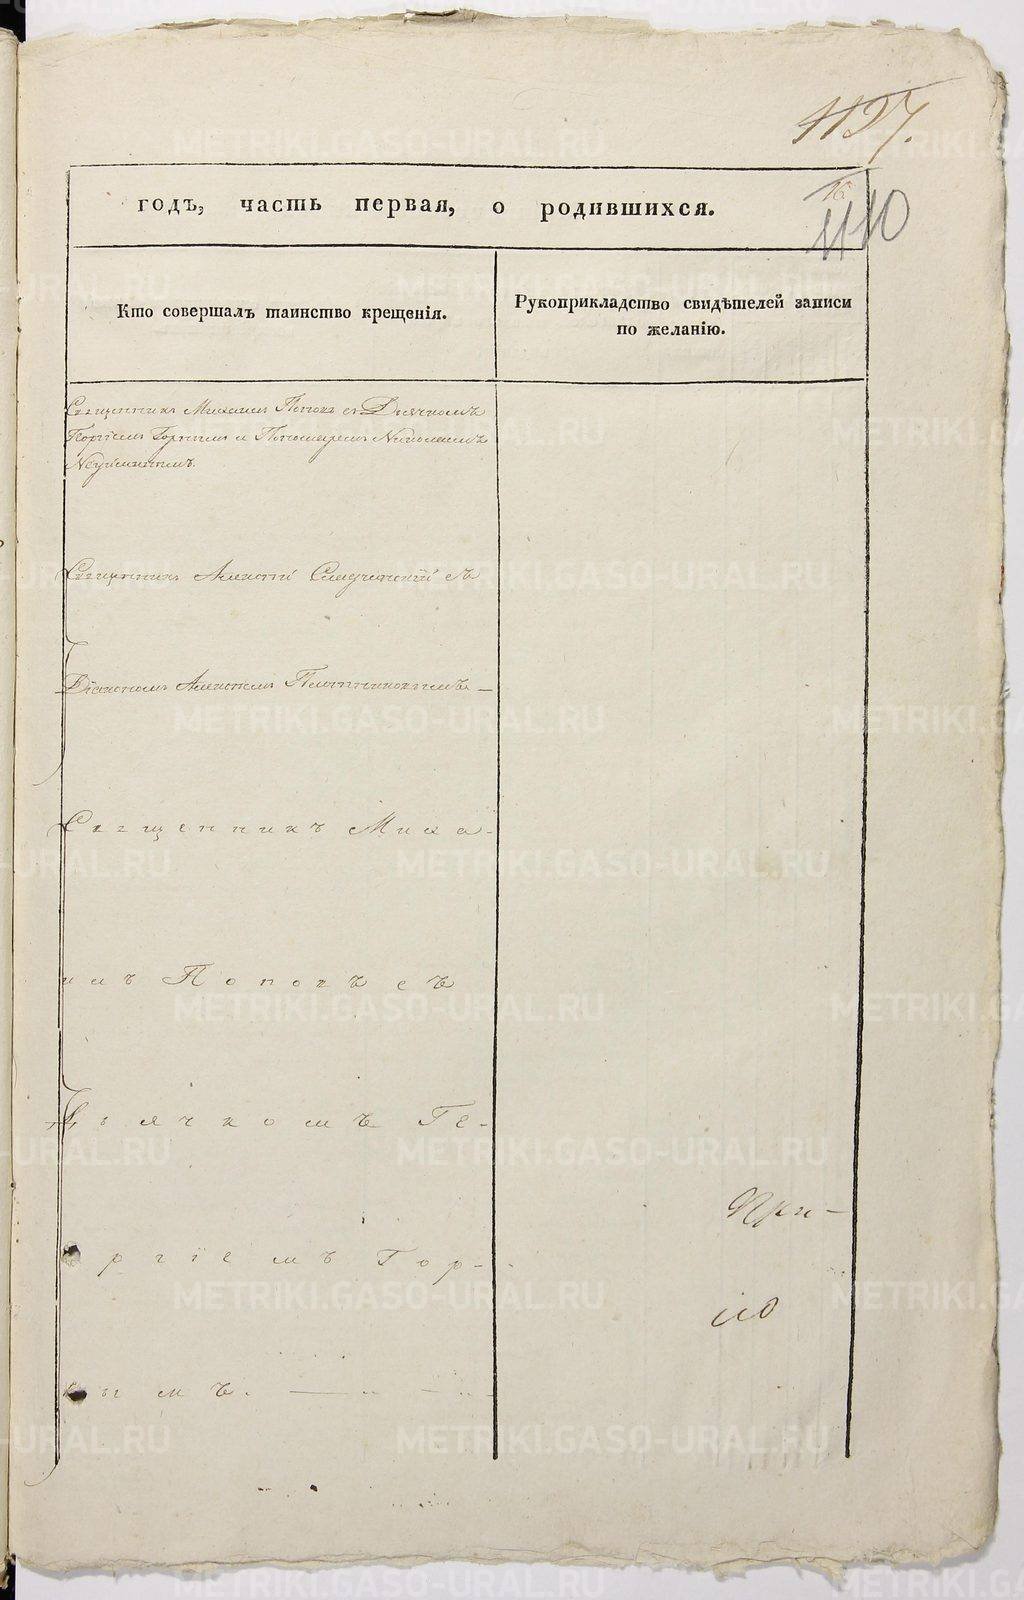 1127.
16
1110
годъ, часть первая, о родившихся.
Кто совершалъ таинство крещенія.
Рукоприкладство свидѣтелей записи
по желанію.
Священникъ Михаилъ Поповъ съ Дьячкомъ
Георгіемъ и Пономаремъ Николаемъ
Неуйминымъ.
Священникъ Алексѣй съ
Діакономъ Алексѣемъ Плотниковымъ —
Священникъ Миха-
илъ Поповъ съ
Дьячкомъ Ге-
оргіемъ Гор-
нымъ. —
При-
METRIKI.GASO-URAL.RU